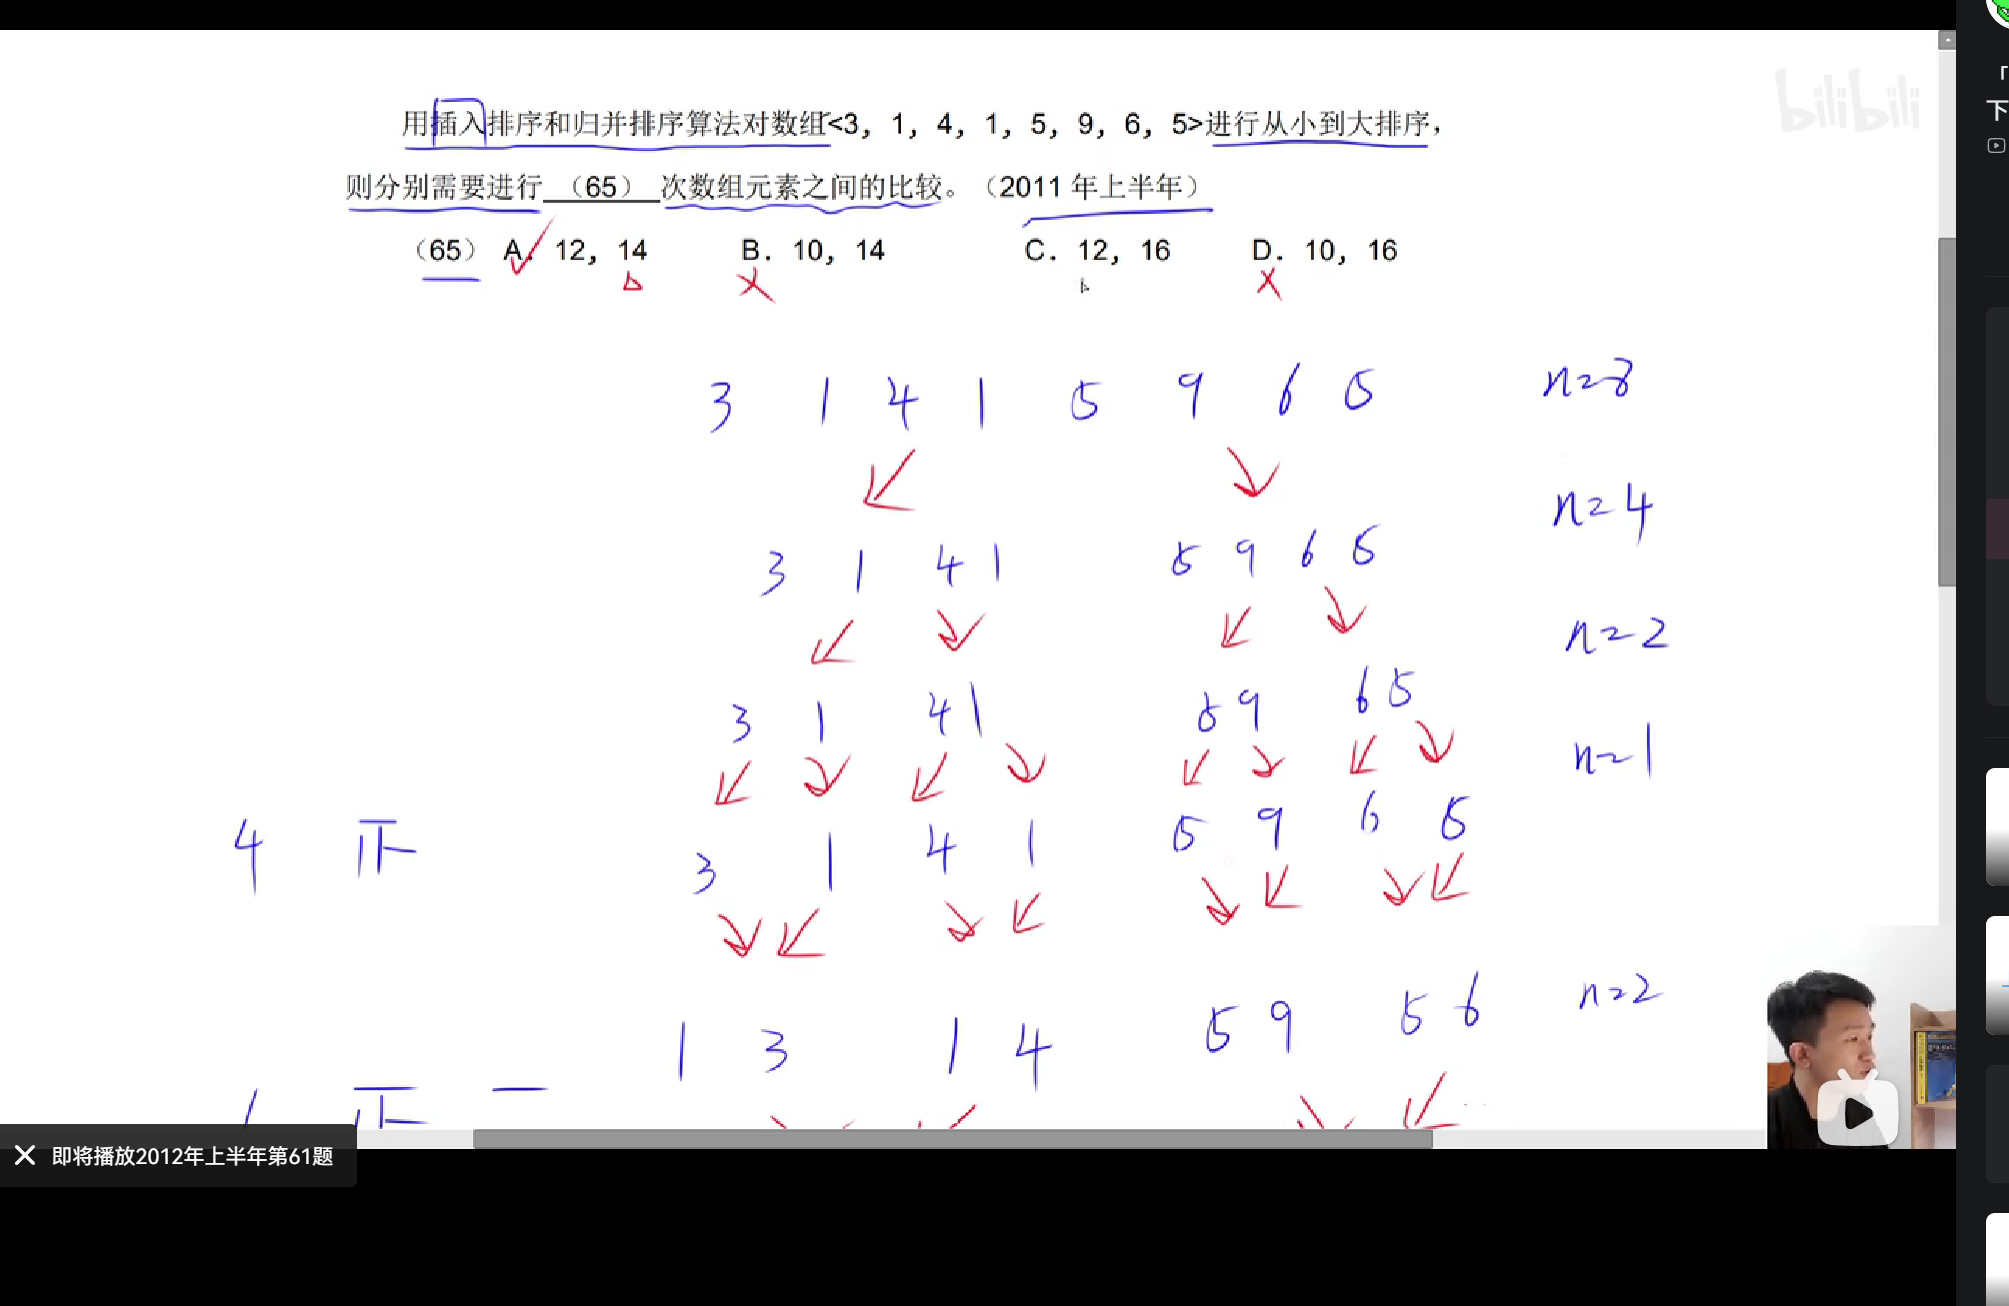 bilibili
「
下
用插入排序和归并排序算法对数组<3, 1, 4, 1, 5, 9, 6, 5>进行从小到大排序，
则分别需要进行 （65） 次数组元素之间的比较。（2011 年上半年）
（65） A. 12, 14 B. 10, 14 C. 12, 16 D. 10, 16
3 1 4 1 5 9 6 5 n=8
n=4
3 1 4 1 5 9 6 5
n=2
3 1 4 1 5 9 6 5
n=1
4 3 1 4 1 5 9 6 5
1 3 1 4 5 9 5 6 n=2
即将播放2012年上半年第61题